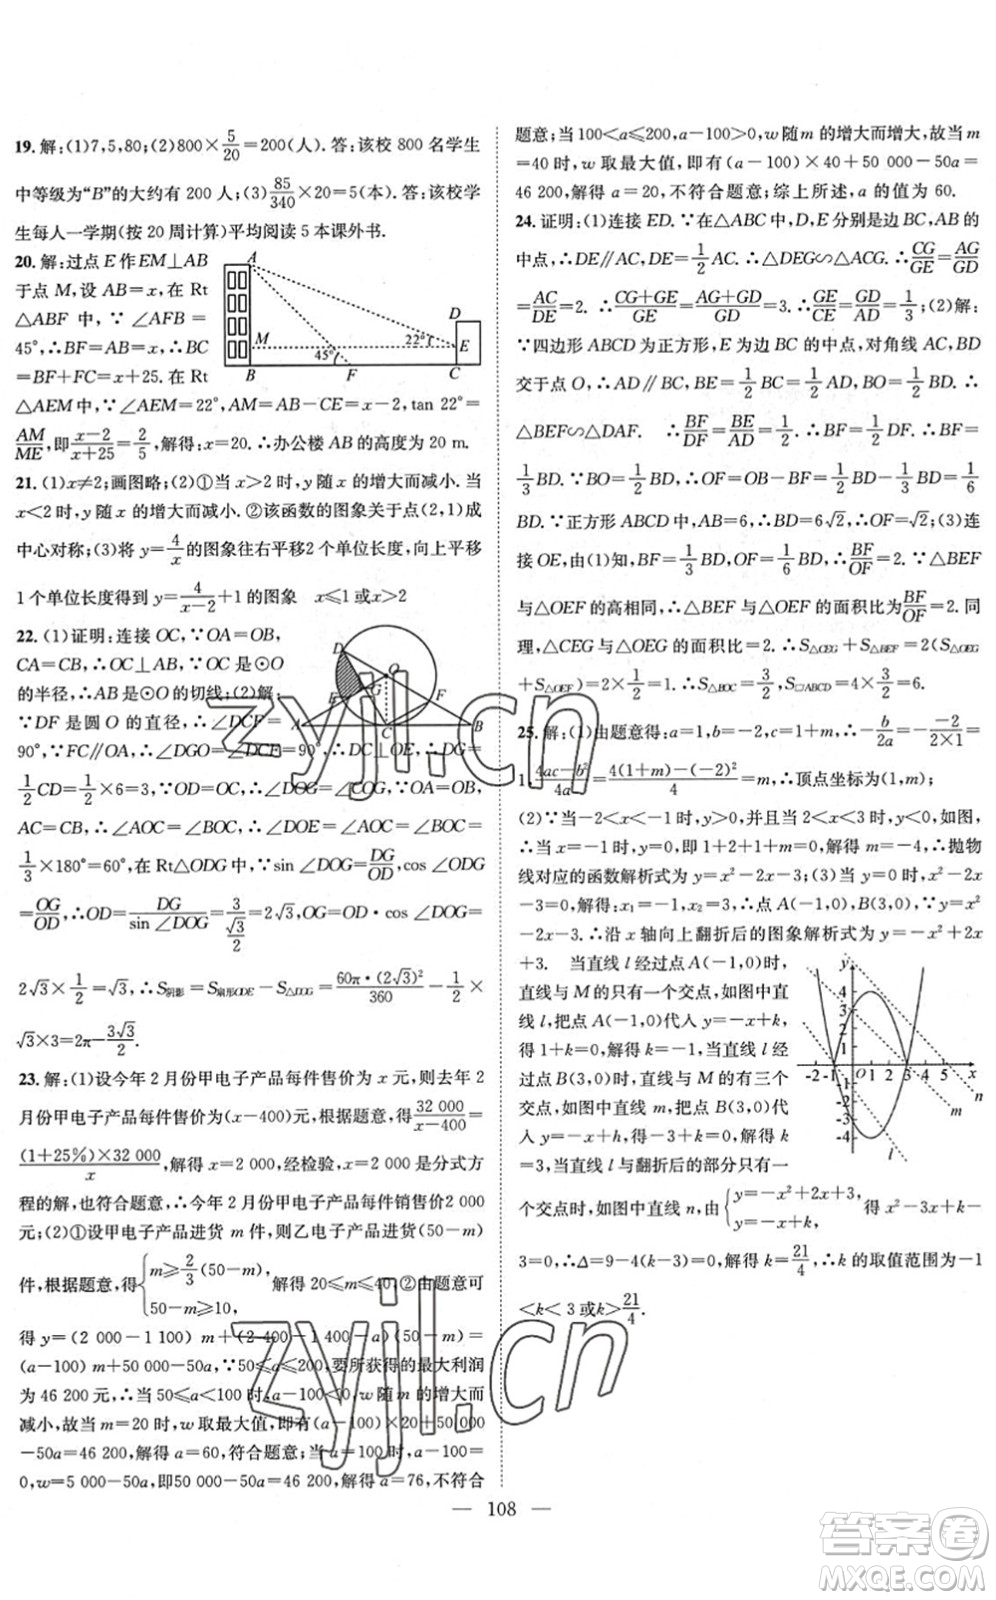 19. 解:(1)7,5,80;(2)800×5/20=200(人). 答:该校 800 名学生
中等级为“B”的大约有 200 人;(3)85/340×20=5(本). 答:该校学
生每人一学期(按 20 周计算)平均阅读 5 本课外书.
20. 解:过点 E 作 EM⊥AB
于点 M,设 AB=x,在 Rt
△ABF 中,∵∠AFB=
45°,∴BF=AB=x,∴BC
=BF+FC=x+25. 在 Rt
△AEM 中,∵∠AEM=22°,AM=AB-CE=x-2,tan 22°=
AM/ME,即(x-2)/(x+25)=2/5,解得:x=20.∴办公楼 AB 的高度为 20 m.
A D M 45° 22° E B F C
21. (1)x≠2;画图略;(2)①当 x>2 时,y 随 x 的增大而减小. 当
x<2 时,y 随 x 的增大而减小. ②该函数的图象关于点(2,1)成
中心对称;(3)将 y=4/x 的图象往右平移2 个单位长度,向上平移
1 个单位长度得到 y=4/(x-2)+1 的图象 x≤1 或x>2
22. (1)证明:连接 OC,∵OA=OB,
CA=CB,∴OC⊥AB,∵OC 是⊙O
的半径,∴AB 是⊙O 的切线;(2)解:
∵DF 是圆 O 的直径,∴∠DCF=
90°,∵FC∥OA,∴∠DGO=∠DCF=90°,∴DC⊥OE,∴DG=
1/2CD=1/2×6=3,∵OD=OC,∴∠DOE=∠COE,∵OA=OB,
AC=CB,∴∠AOC=∠BOC,∴∠DOE=∠AOC=∠BOC=
1/3×180°=60°,在 Rt△ODG 中,∵sin∠DOG=DG/OD,cos∠ODG
=OG/OD,∴OD=DG/(sin∠DOG)=3/(√3/2)=2√3,OG=OD·cos∠DOG=
2√3×1/2=√3,∴S阴影=S扇形ODE-S△DOG=60π·(2√3)²/360-1/2×
√3×3=2π-3√3/2.
D O G E F A C B
23. 解:(1)设今年 2 月份甲电子产品每件售价为 x 元,则去年 2
月份甲电子产品每件售价为(x-400)元,根据题意,得32 000/(x-400)=
(1+25%)×32 000/x,解得 x=2 000,经检验,x=2 000 是分式方
程的解,也符合题意,∴今年 2 月份甲电子产品每件销售价2 000
元;(2)①设甲电子产品进货 m 件,则乙电子产品进货(50-m)
件,根据题意,得{m≥2/3(50-m), 50-m≥10, 解得 20≤m≤40;②由题意可
得 y=(2 000-1 100)m+(2 400-1 400-a)(50-m)=
(a-100)m+50 000-50a,∵50≤a≤200,要所获得的最大利润
为 46 200 元,∴当 50≤a<100 时,a-100<0,w 随 m 的增大而
减小,故当 m=20 时,w 取最大值,即有(a-100)×20+50 000
-50a=46 200,解得 a=60,符合题意;当 a=100 时,a-100=
0,w=5 000-50a,即50 000-50a=46 200,解得 a=76,不符合
题意;当 100<a≤200,a-100>0,w 随m 的增大而增大,故当 m
=40 时,w 取最大值,即有(a-100)×40+50 000-50a=
46 200,解得 a=20,不符合题意;综上所述,a 的值为 60.
24. 证明:(1)连接 ED.∵在△ABC 中,D,E 分别是边 BC,AB 的
中点,∴DE∥AC,DE=1/2AC.∴△DEG∽△ACG.∴CG/GE=AG/GD
=AC/DE=2.∴(CG+GE)/GE=(AG+GD)/GD=3.∴GE/CE=GD/AD=1/3;(2)解:
∵四边形 ABCD 为正方形,E 为 BC 的中点,对角线 AC,BD
交于点 O,∴AD∥BC,BE=1/2BC=1/2AD,BO=1/2BD.∴
△BEF∽△DAF. ∴BF/DF=BE/AD=1/2.∴BF=1/2DF.∴BF=
1/3BD.∵BO=1/2BD,∴OF=OB-BF=1/2BD-1/3BD=1/6
BD.∵正方形 ABCD 中,AB=6,∴BD=6√2,∴OF=√2;(3)连
接 OE,由(1)知,BF=1/3BD,OF=1/6BD,∴BF/OF=2.∵△BEF
与△OEF 的高相同,∴△BEF 与△OEF 的面积比=BF/OF=2. 同
理,△CEG 与△OEG 的面积比=2.∴S△CEG+S△BEF=2(S△OEG
+S△OEF)=2×1/2=1.∴S△BOC=3/2.∴S□ABCD=4×3/2=6.
25. 解:(1)由题意得:a=1,b=-2,c=1+m,∴-b/2a=-(-2)/(2×1)=
1,(4ac-b²)/4a=(4(1+m)-(-2)²)/4=m,∴顶点坐标为(1,m);
(2)∵当-2<x<-1 时,y>0,并且当 2<x<3 时,y<0,如图,
∴当 x=-1 时,y=0,即 1+2+1+m=0,解得 m=-4,∴抛物
线对应的函数解析式为 y=x²-2x-3;(3)当 y=0 时,x²-2x
-3=0,解得:x₁=-1,x₂=3,∴点 A(-1,0),B(3,0),∵y=x²
-2x-3.∴沿 x 轴向上翻折后的图象解析式为 y=-x²+2x
+3. 当直线 l 经过点 A(-1,0)时,
直线与 M 的只有一个交点,如图中直
线 l,把点 A(-1,0)代入 y=-x+k,
得 1+k=0,解得 k=-1;当直线 l 经
过点 B(3,0)时,直线与 M 的有三个
交点,如图中直线 m,把点 B(3,0)代
入 y=-x+k,得-3+k=0,解得 k
=3,当直线与翻折后的部分只有一
个交点时,如图中直线 n,由{y=-x²+2x+3, y=-x+k, 得 x²-3x+k-
3=0,∴Δ=9-4(k-3)=0,解得 k=21/4,∴k 的取值范围为-1
<k<3 或k>21/4.
y 4 3 2 1 -2 -1 O 1 2 3 4 5 x -3 -4 m n l
zyjl.cn
zyjl.cn
— 108 —
答案卷
MXQE.COM